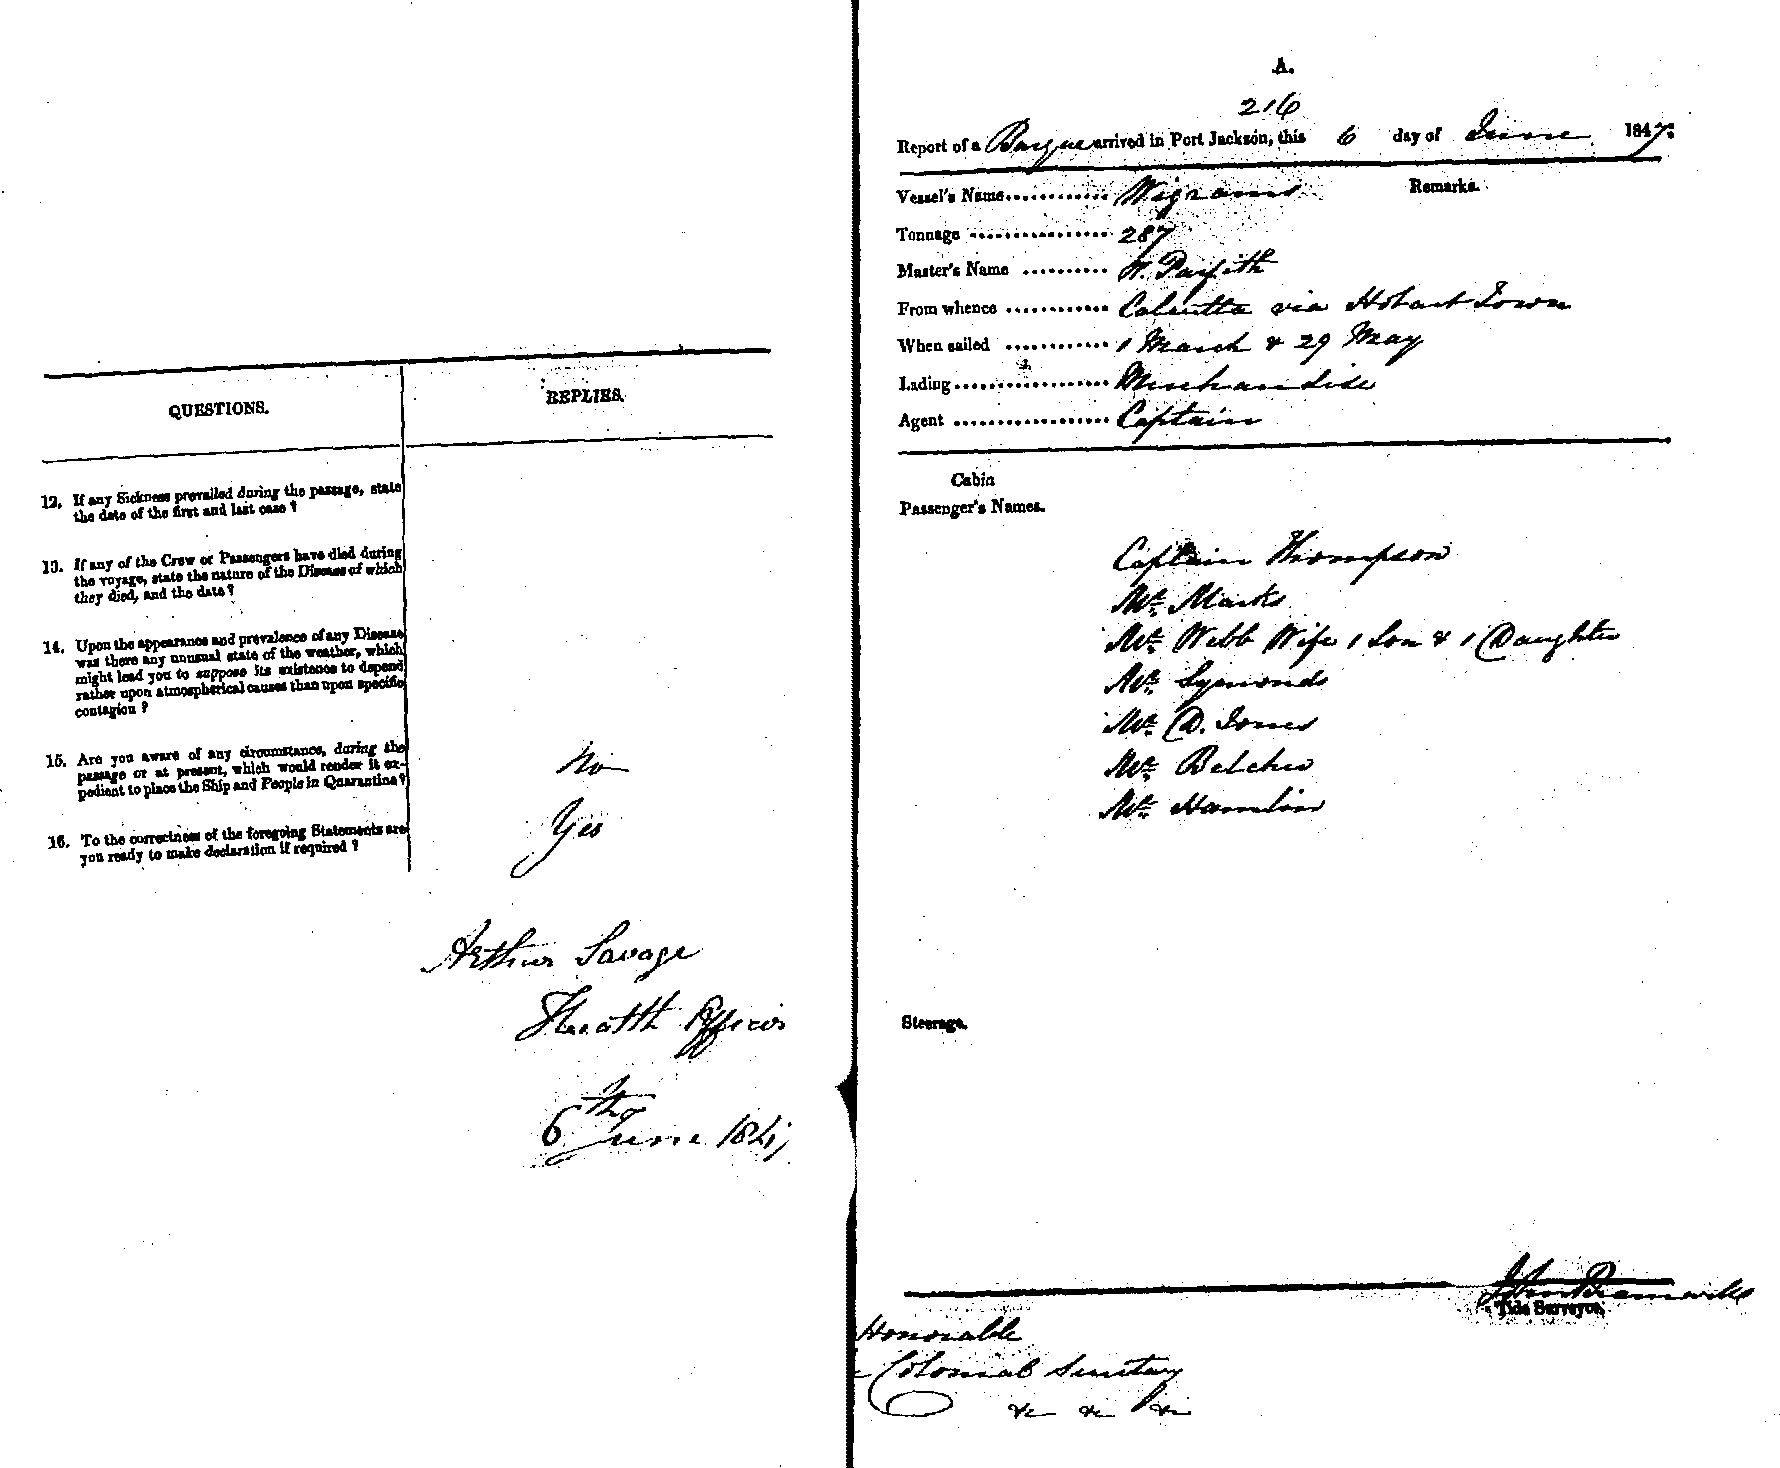 QUESTIONS.
REPLIES.
12. If any Sickness prevailed during the passage, state
the date of the first and last case?
13. If any of the Crew or Passengers have died during
the voyage, state the nature of the Disease of which
they died, and the date?
14. Upon the appearance and prevalence of any Disease
was there any unusual state of the weather, which
might lead you to suppose its existence to depend
rather upon atmospherical causes than upon specific
contagion?
15. Are you aware of any circumstance, during the
passage or at present, which would render it ex-
pedient to place the Ship and People in Quarantine?
No
16. To the correctness of the foregoing Statements are
you ready to make declaration if required?
Yes
Arthur Savage
Health Officer
6th June 1847
A.
216
Report of a Barque arrived in Port Jackson, this 6 day of June 1847.
Remarks.
Vessel's Name Wigrams
Tonnage 287
Master's Name Parfith
From whence Calcutta via Hobart Town
When sailed 1 March & 29 May
Lading Merchandise
Agent Captain
Cabin
Passenger's Names.
Captain Thompson
Mr. Marks
Mr. Webb Wife 1 Son & 1 Daughter
Mr. Symonds
Mr. D. Jones
Mr. Belcher
Mr. Hamlin
Steerage.
John
Tide Surveyor.
Honorable
Colonial Secretary
&c &c &c